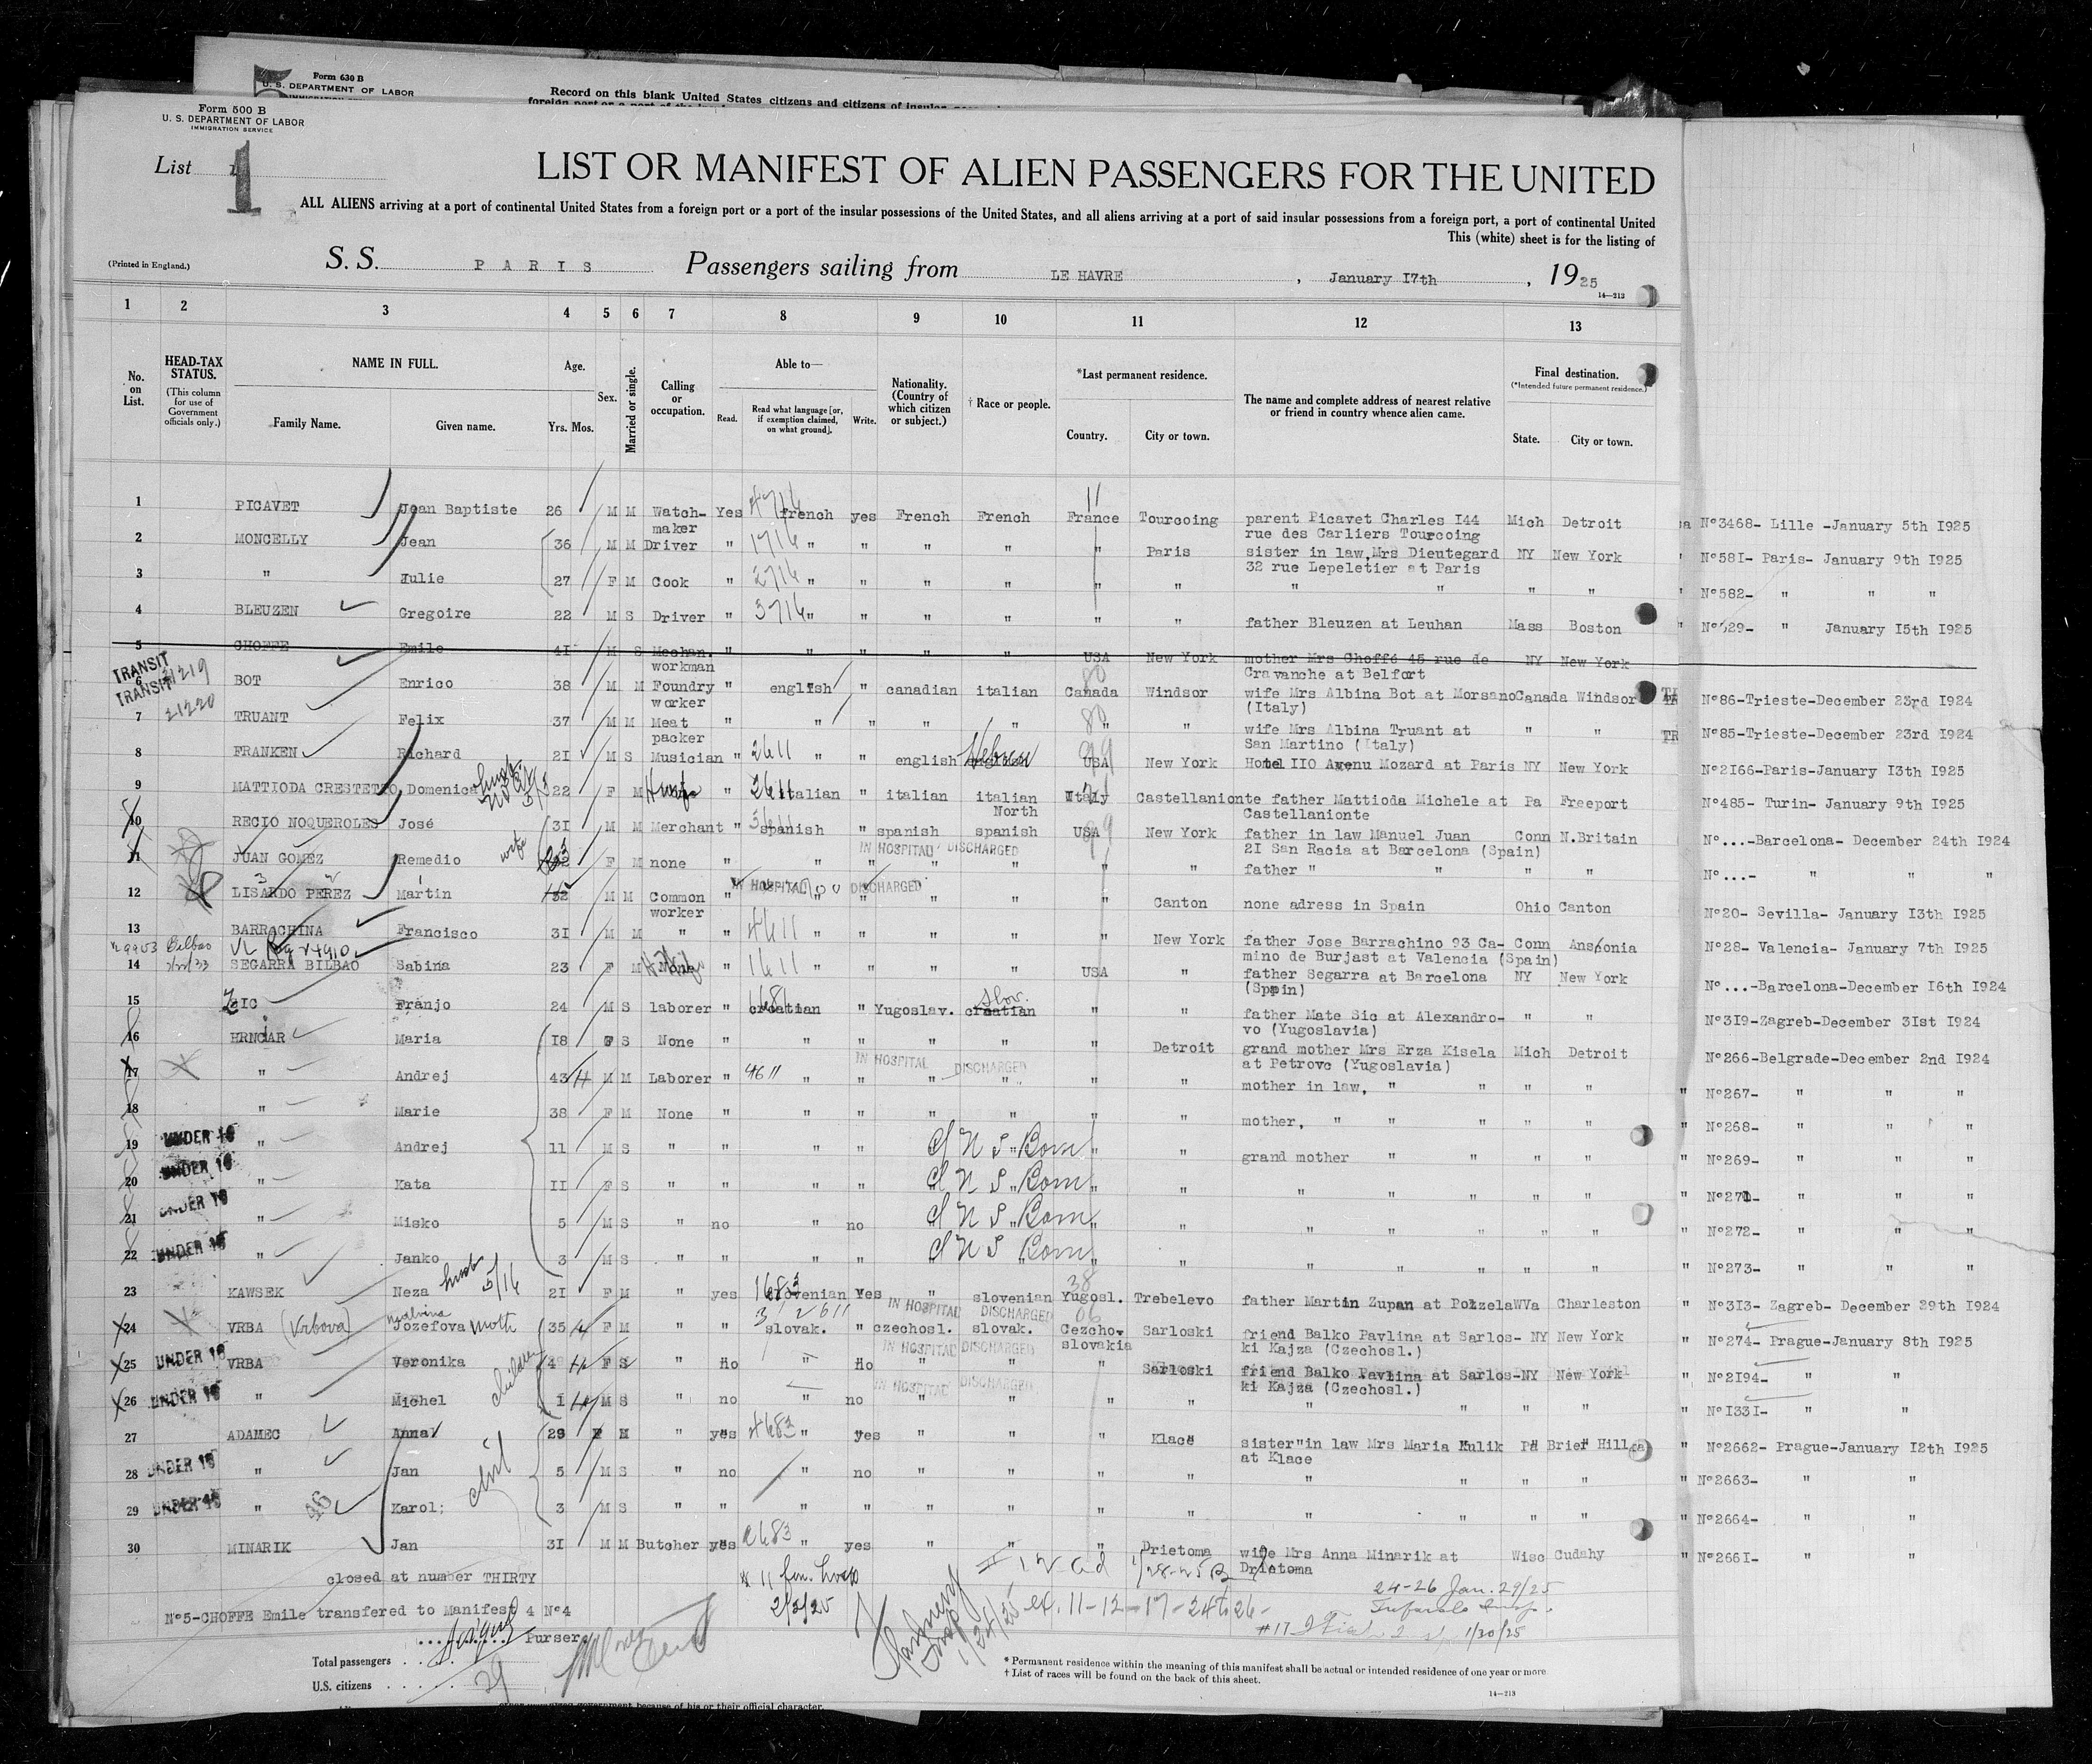 Form 630 B
U. S. DEPARTMENT OF LABOR
Record on this blank United States citizens and citizens of insular
Form 500 B
U. S. DEPARTMENT OF LABOR
IMMIGRATION SERVICE
List 1
LIST OR MANIFEST OF ALIEN PASSENGERS FOR THE UNITED
ALL ALIENS arriving at a port of continental United States from a foreign port or a port of the insular possessions of the United States, and all aliens arriving at a port of said insular possessions from a foreign port, a port of continental United
This (white) sheet is for the listing of
(Printed in England.)
S. S. PARIS Passengers sailing from LE HAVRE, January 17th, 1925
14—213
1 2 3 4 5 6 7 8 9 10 11 12 13
No. on List.
HEAD-TAX STATUS.
(This column for use of Government officials only.)
NAME IN FULL.
Family Name. Given name.
Age.
Yrs. Mos.
Sex.
Married or single.
Calling or occupation.
Able to—
Read. Read what language [or, if exemption claimed, on what ground]. Write.
Nationality. (Country of which citizen or subject.)
† Race or people.
*Last permanent residence.
Country. City or town.
The name and complete address of nearest relative or friend in country whence alien came.
Final destination.
(*Intended future permanent residence.)
State. City or town.
1 PICAVET Jean Baptiste 26 M M Watch- Yes french yes French French France Tourcoing parent Picavet Charles I44 Mich Detroit N°3468- Lille -January 5th I925
maker rue des Carliers Tourcoing
2 MONCELLY Jean 36 M M Driver " " " " " " Paris sister in law,Mrs Dieutegard NY New York N°58I- Paris- January 9th I925
32 rue Lepeletier at Paris
3 " Julie 27 F M Cook " " " " " " " " " " " N°582- " " "
4 BLEUZEN Gregoire 22 M S Driver " " " " " " " father Bleuzen at Leuhan Mass Boston N°629- " January I5th I925
5 CHOFFE Emile 4I M S Mechan. " " " " " USA New York mother Mrs Choffé 45 rue de NY New York
workman Cravanche at Belfort
TRANSIT 21219
6 BOT Enrico 38 M M Foundry " english " canadian italian Canada Windsor wife Mrs Albina Bot at Morsano Canada Windsor N°86-Trieste-December 23rd I924
worker (Italy)
TRANSIT 21220
7 TRUANT Felix 37 M M Meat " " " " " " " wife Mrs Albina Truant at " " N°85-Trieste-December 23rd I924
packer San Martino (Italy)
8 FRANKEN Richard 2I M S Musician " " " english Hebrew USA New York Hotel IIO Avenu Mozard at Paris NY New York N°2I66-Paris-January I3th I925
9 MATTIODA CRESTETTO Domenica 22 F M " italian " italian italian Italy Castellanionte father Mattioda Michele at Pa Freeport N°485- Turin- January 9th I925
North Castellanionte
10 RECIO NOQUEROLES José 3I M M Merchant " spanish " spanish spanish USA New York father in law Manuel Juan Conn N.Britain N°...-Barcelona- December 24th I924
IN HOSPITAL DISCHARGED 2I San Racia at Barcelona (Spain)
11 JUAN GOMEZ Remedio wife F M none " " " " " " " father " " " " N°...- " " "
IN HOSPITAL DISCHARGED
12 LISARDO PEREZ Martin M M Common " " " " " " Canton none adress in Spain Ohio Canton N°20- Sevilla- January I3th I925
worker
13 BARRACHINA Francisco 3I M M " " " " " " " New York father Jose Barrachino 93 Ca- Conn Ansonia N°28- Valencia- January 7th I925
mino de Burjast at Valencia (Spain)
14 SEGARRA BILBAO Sabina 23 F M " " " " " USA " father Segarra at Barcelona NY New York N°...-Barcelona-December I6th I924
(Spain)
15 ZIC Franjo 24 M S laborer " croatian " Yugoslav. croatian " " father Mate Sic at Alexandro- " " N°3I9-Zagreb-December 3Ist I924
Slov. vo (Yugoslavia)
16 HRNCIAR Maria I8 F S None " " " " " " Detroit grand mother Mrs Erza Kisela Mich Detroit N°266-Belgrade-December 2nd I924
IN HOSPITAL DISCHARGED at Petrovc (Yugoslavia)
17 " Andrej 43 M M Laborer " " " " " " " mother in law, " " " " " N°267- " " "
18 " Marie 38 F M None " " " " " " " mother, " " " " " N°268- " " "
19 UNDER 16 " Andrej 11 M S " " " " U S Born " " grand mother " " " " " N°269- " " "
20 UNDER 16 " Kata II F S " " " " U S Born " " " " " " " " N°270- " " "
21 UNDER 16 " Misko 5 M S " no " no U S Born " " " " " " " " N°272- " " "
22 UNDER 16 " Janko 3 M S " " " " U S Born " " " " " " " " N°273- " " "
23 KAWSEK Neza husb 5/16 2I F M " yes slovenian Yes " slovenian Yugosl. Trebelevo father Martin Zupan at Polzela WVa Charleston " N°3I3- Zagreb- December 29th I924
IN HOSPITAL DISCHARGED
24 VRBA (Vrbova) Malvina Jozefova Moth 35 F M " " slovak. " czechosl. slovak. Cezcho- Sarloski friend Balko Pavlina at Sarlos- NY New York " N°274- Prague-January 8th I925
IN HOSPITAL DISCHARGED slovakia ki Kajza (Czechosl.)
25 UNDER 16 VRBA Veronika 4 F S " no " no " " " Sarloski friend Balko Pavlina at Sarlos- NY New York " N°2I94- " "
IN HOSPITAL DISCHARGED ki Kajza (Czechosl.)
26 UNDER 16 " Michel children I M S " no " no " " " " " " " " " N°I33I- " "
27 ADAMEC Anna 29 F M " yes " yes " " " Klace sister in law Mrs Maria Kulik Pa Brier Hill " N°2662- Prague-January I2th I925
at Klace
28 UNDER 16 " Jan 5 M S " no " no " " " " " " " " " N°2663- " "
29 UNDER 16 " Karol; 3 M S " " " " " " " " " " " " " N°2664- " "
30 MINARIK Jan 3I M M Butcher yes " yes " " " Drietoma wife Mrs Anna Minarik at Wisc Cudahy " N°266I- " "
Drietoma
closed at number THIRTY
2/2/25
24-26 Jan. 29/25
N°5-CHOFFE Emile transfered to Manifest 4 N°4
11-12-17-24 to 26-
1/30/25
Purser.
Total passengers
U.S. citizens 29
* Permanent residence within the meaning of this manifest shall be actual or intended residence of one year or more
† List of races will be found on the back of this sheet.
14—213
government because of his or their official character.